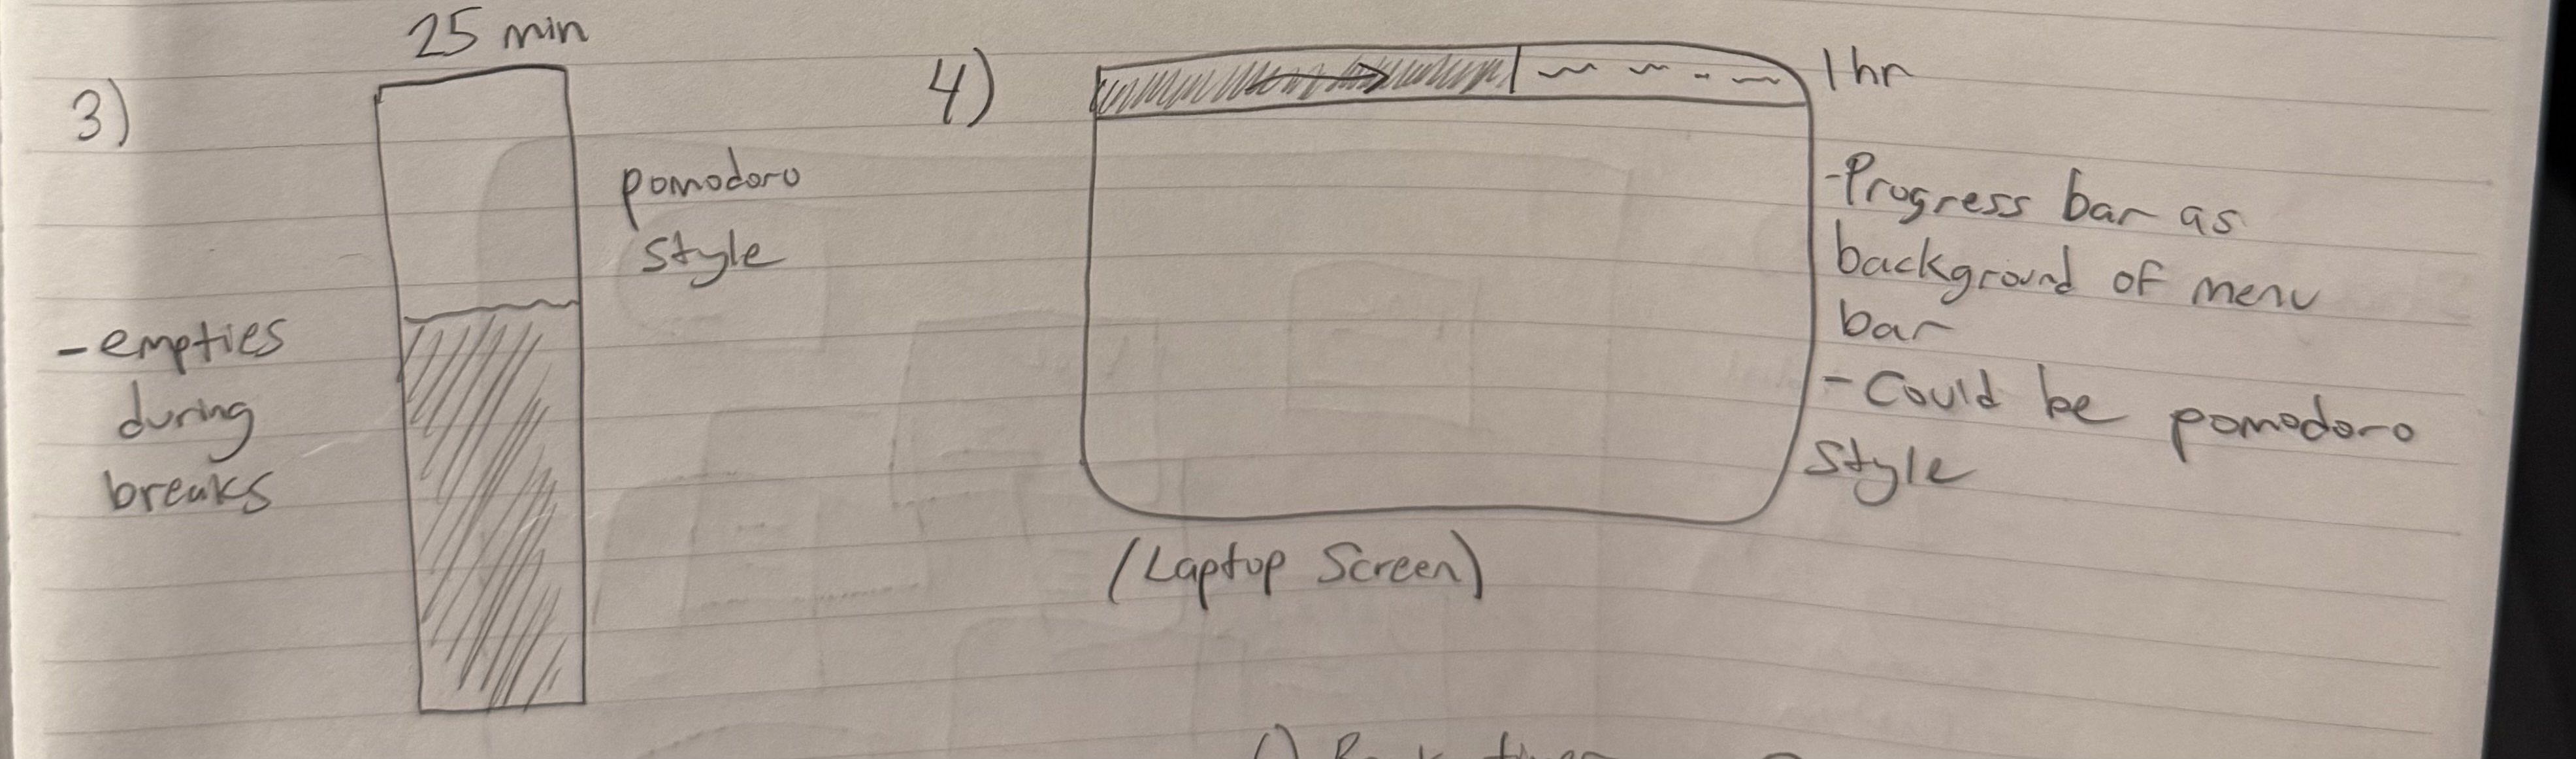 3)
25 min
pomodoro
style
- empties
during
breaks
4)
1hr
- Progress bar as
background of menu
bar
- Could be pomodoro
style
(Laptop Screen)